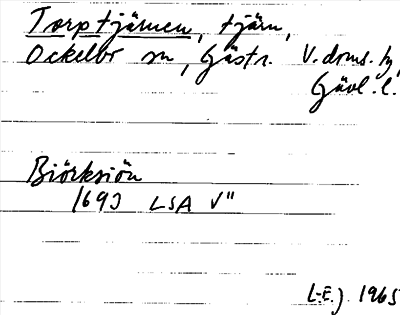 Torptjärnen, tjärn,
Ockelbo sn, Gästr. V. doms. tg,
Gävl. l.
Biörksiön
1693 LSA V"
L-E.J. 1965